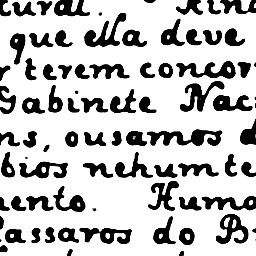 tural. Aind
que ella deve
r terem concor
Gabinete Naci
ns, ousamos d
bios nehum te
ento. Huma
Passaros do Br